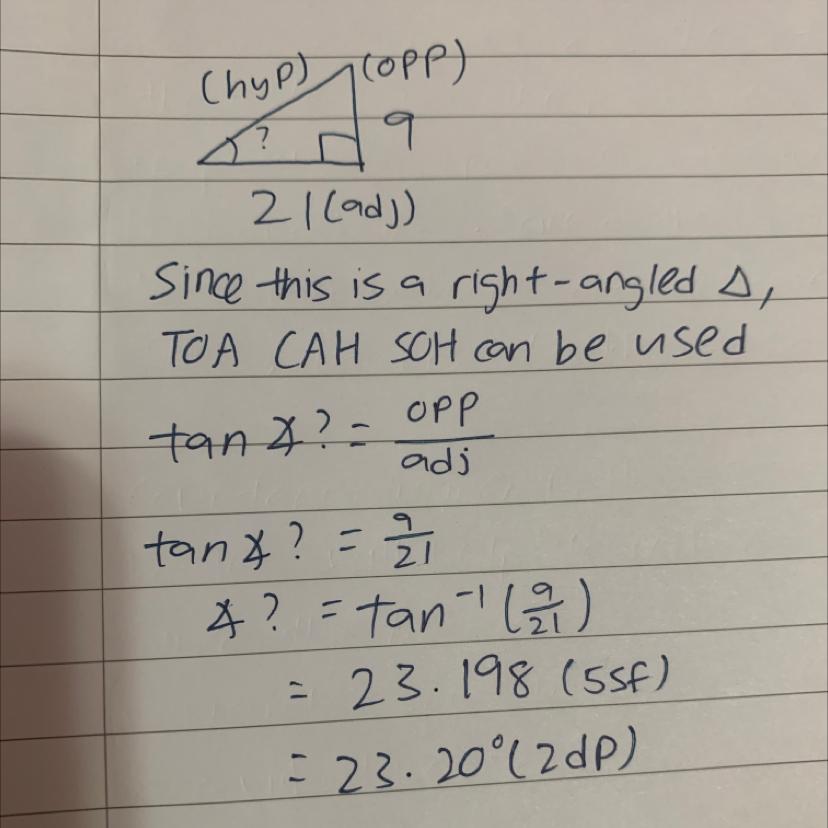 (hyp) (opp)
? 9
21(adj)
Since this is a right-angled Δ,
TOA CAH SOH can be used
tan ∡? = opp/adj
tan ∡? = 9/21
∡? = tan⁻¹(9/21)
= 23.198 (5sf)
= 23.20°(2dp)